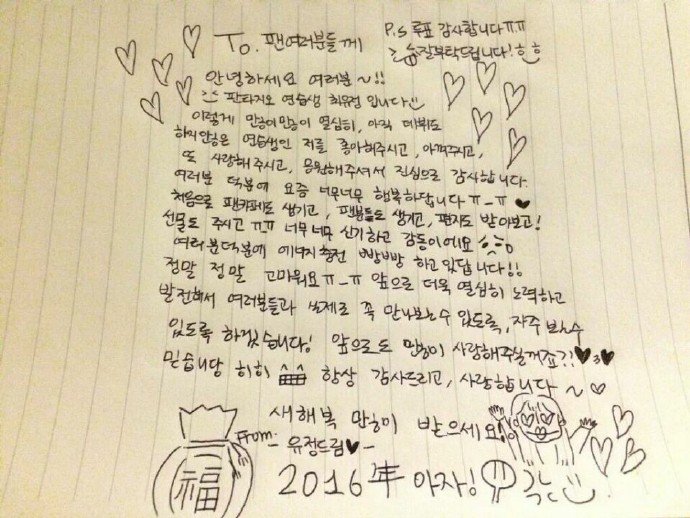 To. 팬여러분들께
P.s 투표 감사합니다ㅠㅠ
잘부탁드립니다!ㅎㅎ
안녕하세요 여러분~!!
판타지오 연습생 최유정 입니다
이렇게 많이많이 열심히, 아직 데뷔도
하지않은 연습생인 저를 좋아해주시고, 아껴주시고,
또 사랑해주시고, 응원해주셔서 진심으로 감사합니다.
여러분 덕분에 요즘 너무너무 행복하답니다ㅠ_ㅠ♥
처음으로 팬카페도 생기고, 팬분들도 생기고, 편지도 받아보고!
선물도 주시고 ㅠㅠ 너무너무 신기하고 감동이에요
여러분덕분에 에너지충전 빵빵 하고있답니다!!
정말 정말 고마워요ㅠ_ㅠ 앞으로 더욱 열심히 노력하고
발전해서 여러분들과 실제로 꼭 만나볼수 있도록, 자주 볼수
있도록 하겠습니다! 앞으로도 많이 사랑해주실꺼죠?!♥3♥
믿습니당 히히 항상 감사드리고, 사랑합니다~♡
새해복 많이 받으세요!
From. 유정드림♥-
福
2016年 아자!